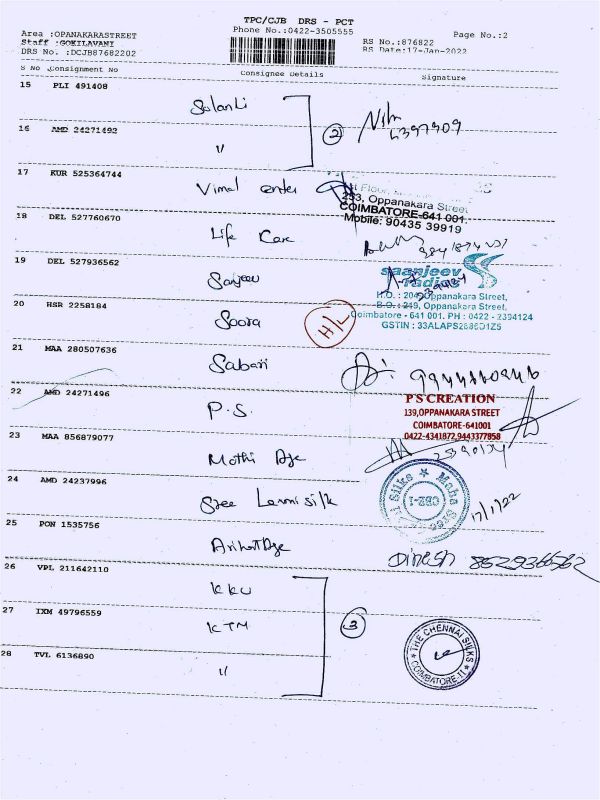 TPC/CJB DRS - PCT
Phone No.:0422-3505555
Page No.:2
Area :OPANAKARASTREET
Staff :GOKILAVANI
DRS No. :DCJB87682202
RS No.:876822
RS Date:17-Jan-2022
S No Consignment No Consignee Details Signature
15 PLI 491408
16 AMD 24271492
"
2
17 KUR 525364744
Vimal Center
233, Oppanakara Street,
COIMBATORE-641 001.
Mobile: 90435 39919
18 DEL 527760670
Life Care
19 DEL 527936562
Sanjeev
saanjeev
radios
H.O. : 204, Oppanakara Street,
B.O. : 249, Oppanakara Street,
Coimbatore - 641 001. PH : 0422 - 2394124
20 HSR 2258184
Soora
H/L
21 MAA 280507636
Sabari
22 AMD 24271496
P.S
P S CREATION
139,OPPANAKARA STREET
COIMBATORE-641001
0422-4341872,9443377858
23 MAA 856879077
Mothi
24 AMD 24237996
Sree Laxmi Silk
Maha
Silks
CBE-1
17/1/22
25 PON 1535756
Dinesh
26 VPL 211642110
KKU
27 IXM 49796559
KTM
3
28 TVL 6136890
"
THE CHENNAI SILKS
COIMBATORE-11